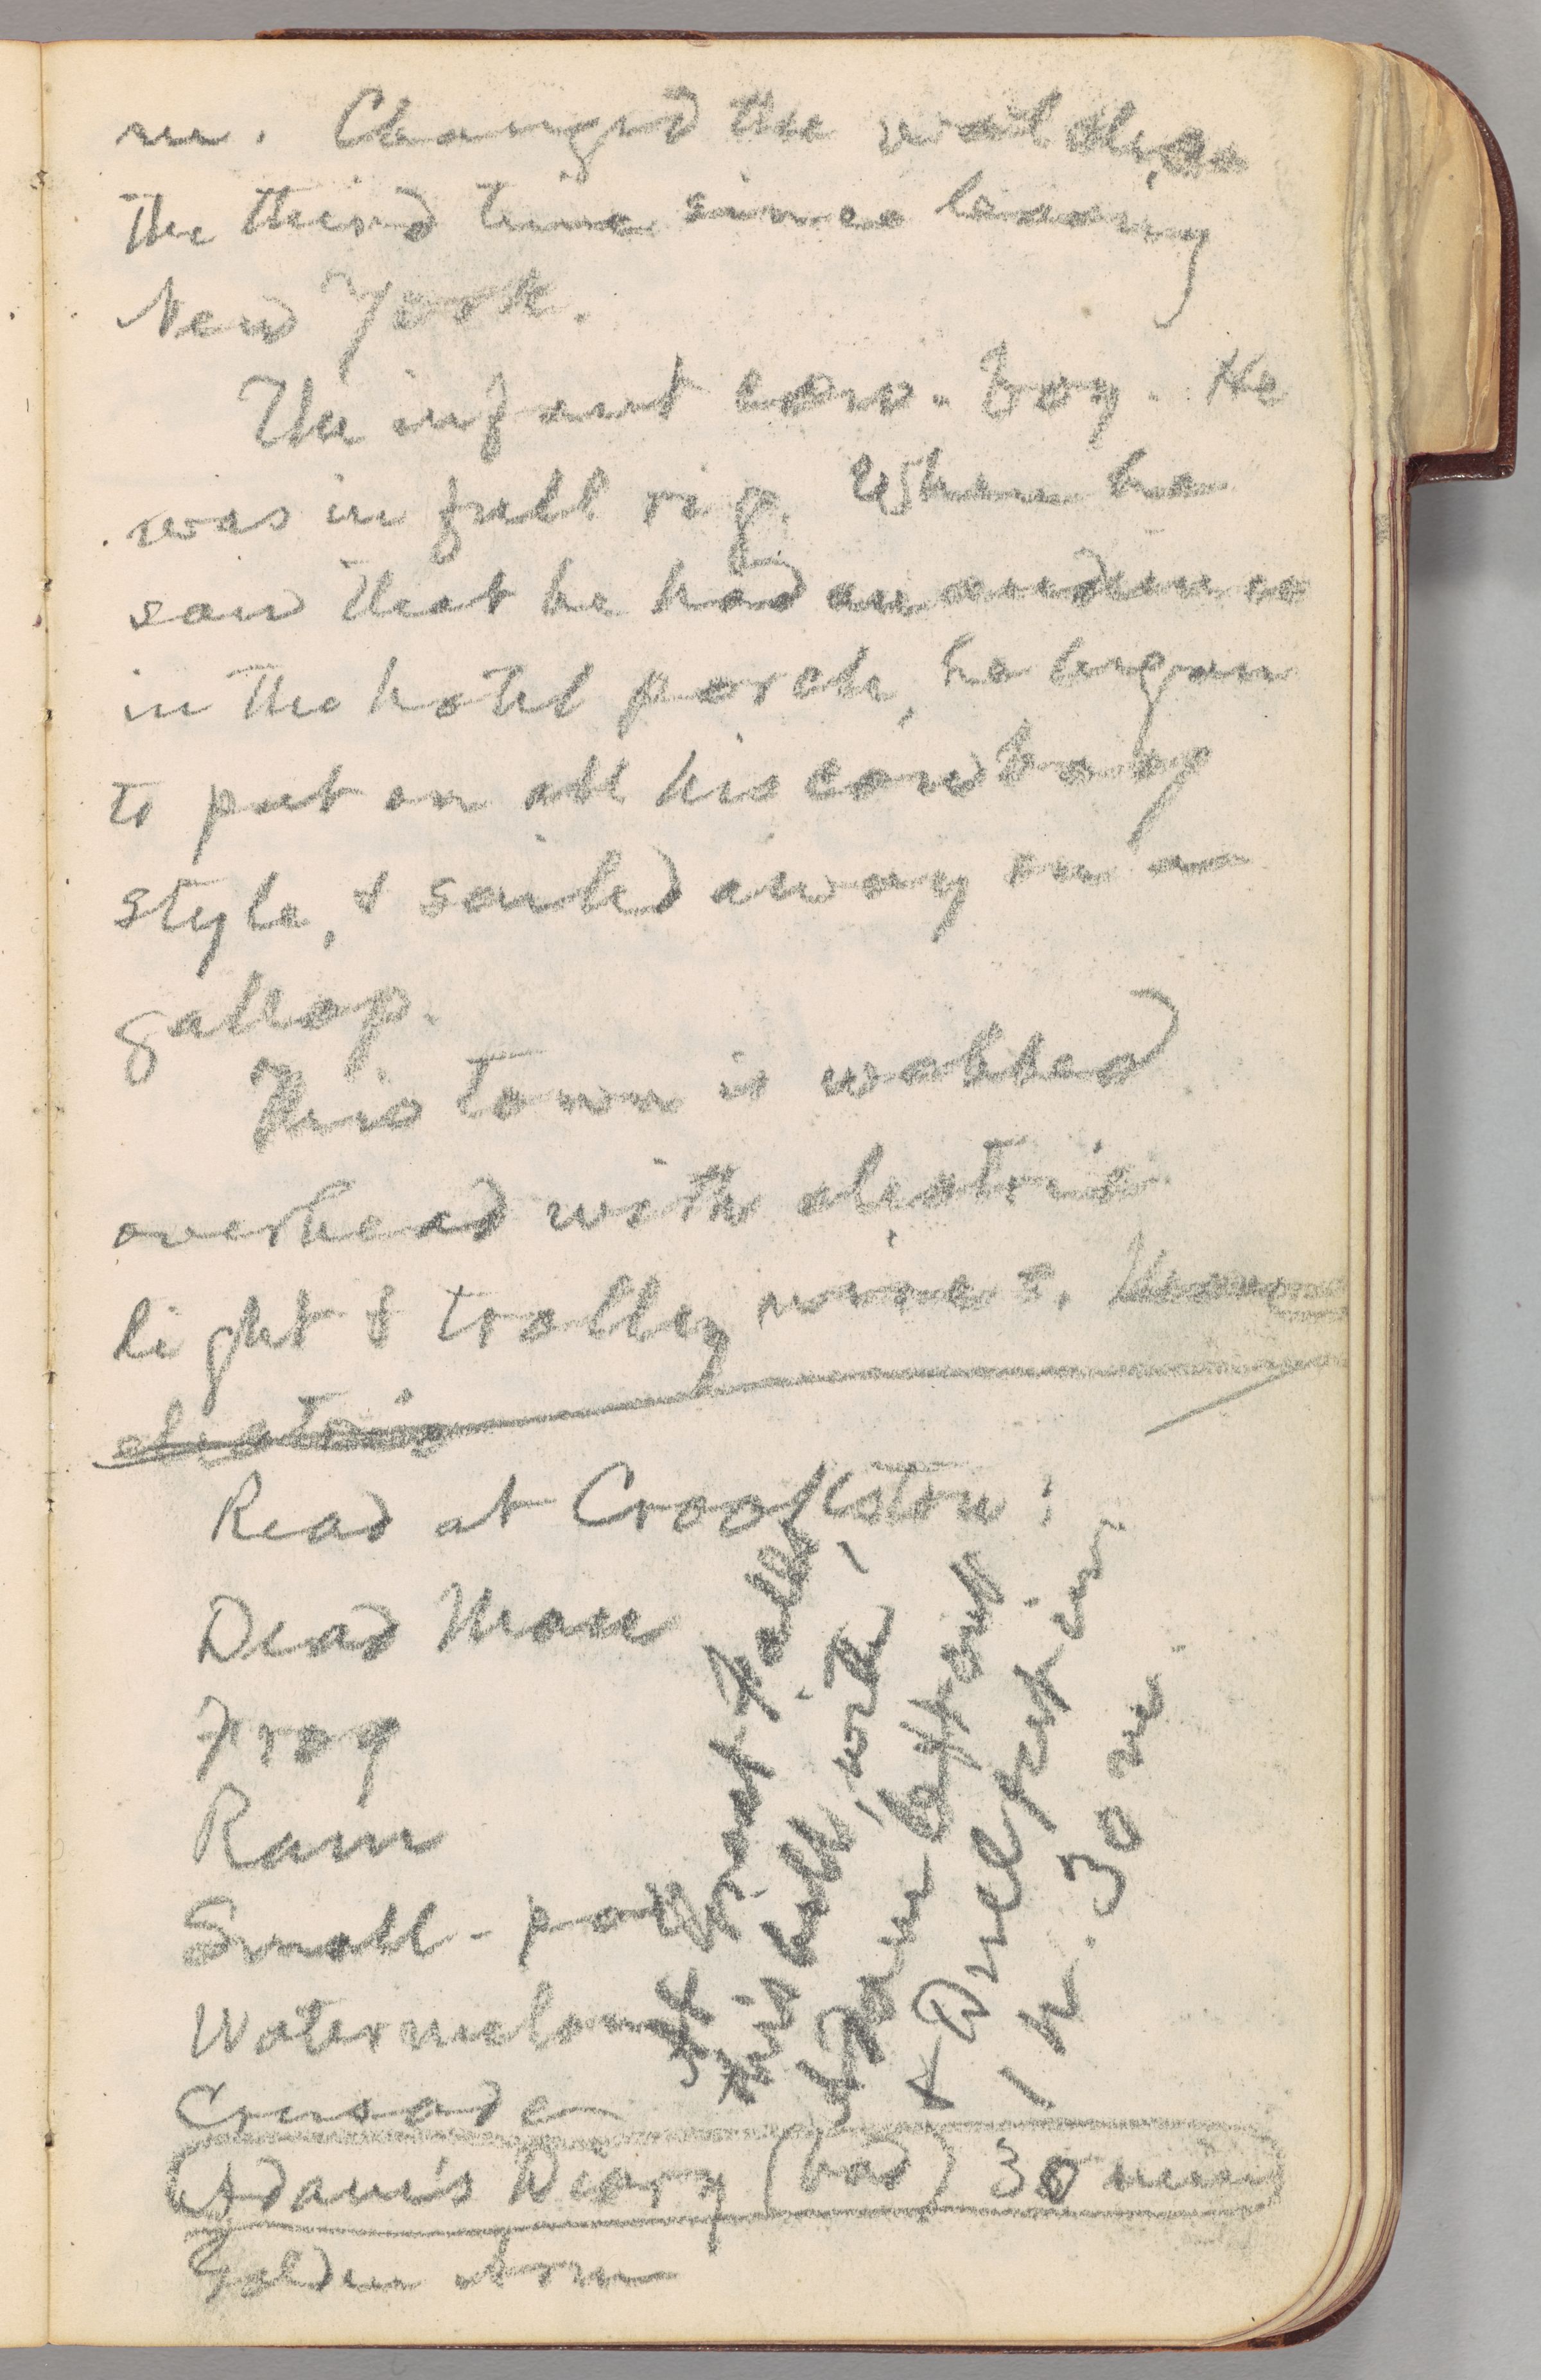 m. Changed the watches
the third time since leaving
New York.
The infant cow-boy. He
was in full rig. When he
saw that he had an audience
in the hotel porch, he began
to put on all his cowboy
style, & sailed away on a
gallop.
This town is webbed
overhead with electric
light & trolley wires.
electric
Read at Crookston:
Dead Man
Frog
Ram
Small-pox
Watermelon
Crusade
Adam's Diary (bad) 30 min
Golden Arm
At Great Falls
this bill, with
Adam left out
& Duel put in,
1 h. 30 m.